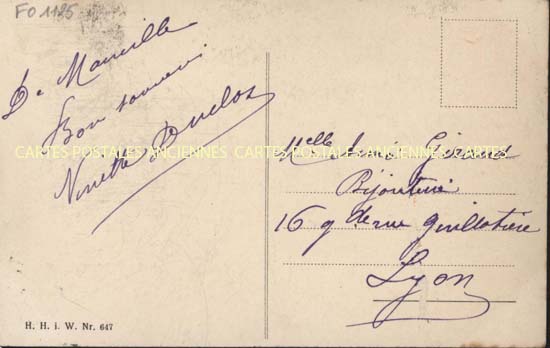 FO 1125
De Marseille
Bon souvenir
Ninette Duclos
CARTES POSTALES ANCIENNES CARTES POSTALES ANCIENNES
Melle Girard
Bijouterie
16 gde rue guillotière
Lyon
H. H. i. W. Nr. 647